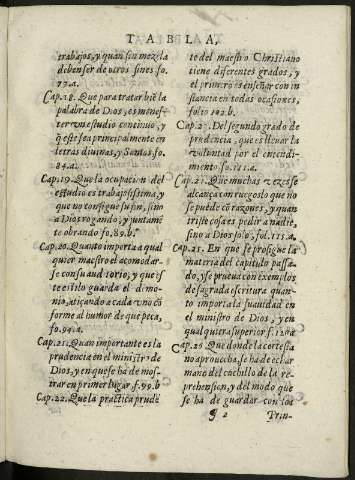 TABLA.
trabajos, y quan sin mezcla
deben ser de otros fines. fo.
77.a.
Cap. 18. Que para tratar biẽ la
palabra de Dios, es menes-
ter vn estudio continuo, y
q̃ este sea principalmente en
letras diuinas, y Santos. fo.
84.a.
Cap. 19. Que la ocupacion del
estudio es trabajosissima, y
que no consigue su fin, sino
a Dios rogando, y juntamẽ
te obrando fo. 89.b.
Cap. 20. Quanto importa a qual
quier maestro el acomodar-
se con su auditorio, y que es
te estilo guarda el demo-
nio, atiçando a cada vno cõ
forme al humor de que peca,
fo. 94.a.
Cap. 21. Quan importante es la
prudencia en el ministro de
Dios, y en que se ha de mos-
trar en primer lugar, f. 99.b
Cap. 22. Que la practica prudẽ
te del maestro Christiano
tiene diferentes grados, y
el primero es enseñar con in
stancia en todas ocasiones,
folio 102.b.
Cap. 23. Del segundo grado de
prudencia, que es lleuar la
voluntad por el encendi-
miento fo. 111.a.
Cap. 24. Que muchas vezes se
alcança con ruegos lo que no
se puede cõ razones, y quan
triste cosa es pedir a nadie,
sino a Dios solo, fol. 115.a.
Cap. 25. En que se prosigue la
materia del capitulo passa-
do, y se prueua con exemplos
de sagrada escritura quan-
to importa la suauidad en
el ministro de Dios, y en
qualquiera superior, f. 120.a
Cap. 26. Que donde la cortesia
no aprouecha, se ha de echar
mano del cuchillo de la re
prehension, y del modo que
se ha de guardar con los
¶ 2 Prin-